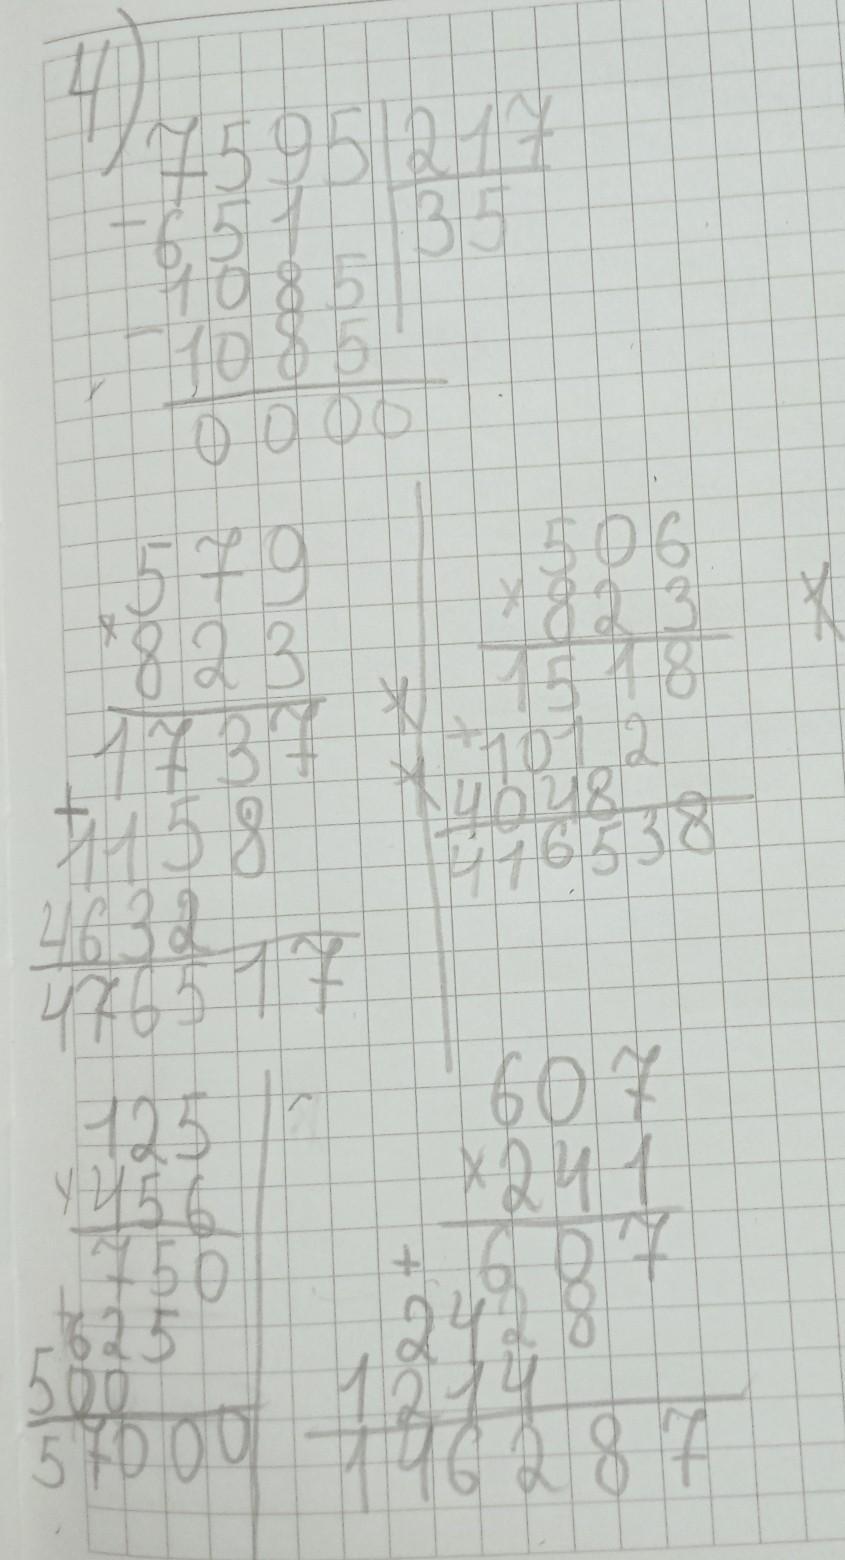 4)
7595|217
-651 |35
1085
-1085
0000
579
×823
1737
+1158
4632
476517
506
×823
1518
+1012
4048
416538
125
×456
750
+625
500
57000
607
×241
+607
2428
1214
146287